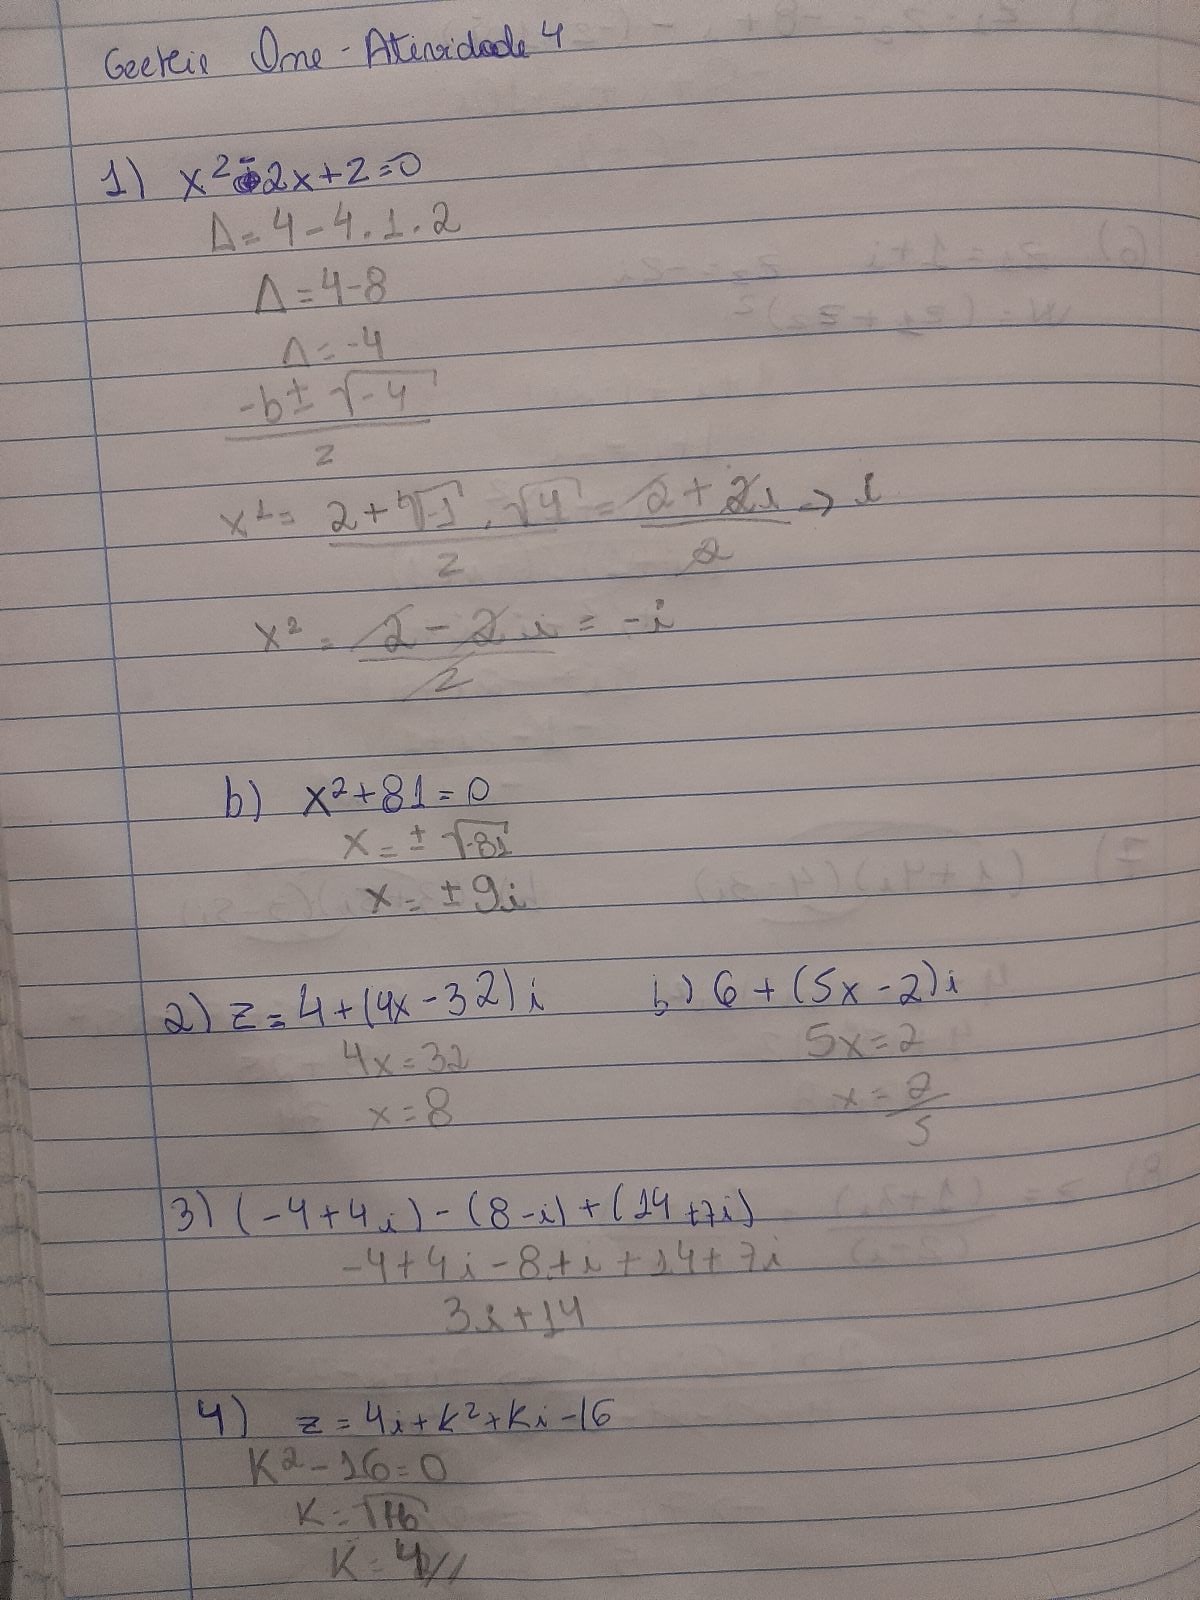 Geekie One - Atividade 4
1) x² - 2x + 2 = 0
Δ = 4 - 4 . 1 . 2
Δ = 4 - 8
Δ = -4
-b ± √-4
2
x¹ = 2 + √-1 . √4 = 2 + 2i → i
2 2
x² = 2 - 2i = -i
2
b) x² + 81 = 0
x = ± √-81
x = ± 9i
2) z = 4 + (4x - 32)i b) 6 + (5x - 2)i
4x = 32 5x = 2
x = 8 x = 2
5
3) (-4 + 4i) - (8 - i) + (14 + 7i)
-4 + 4i - 8 + i + 14 + 7i
3i + 14
4) z = 4i + k² + ki - 16
K² - 16 = 0
K = √16
K = 4//